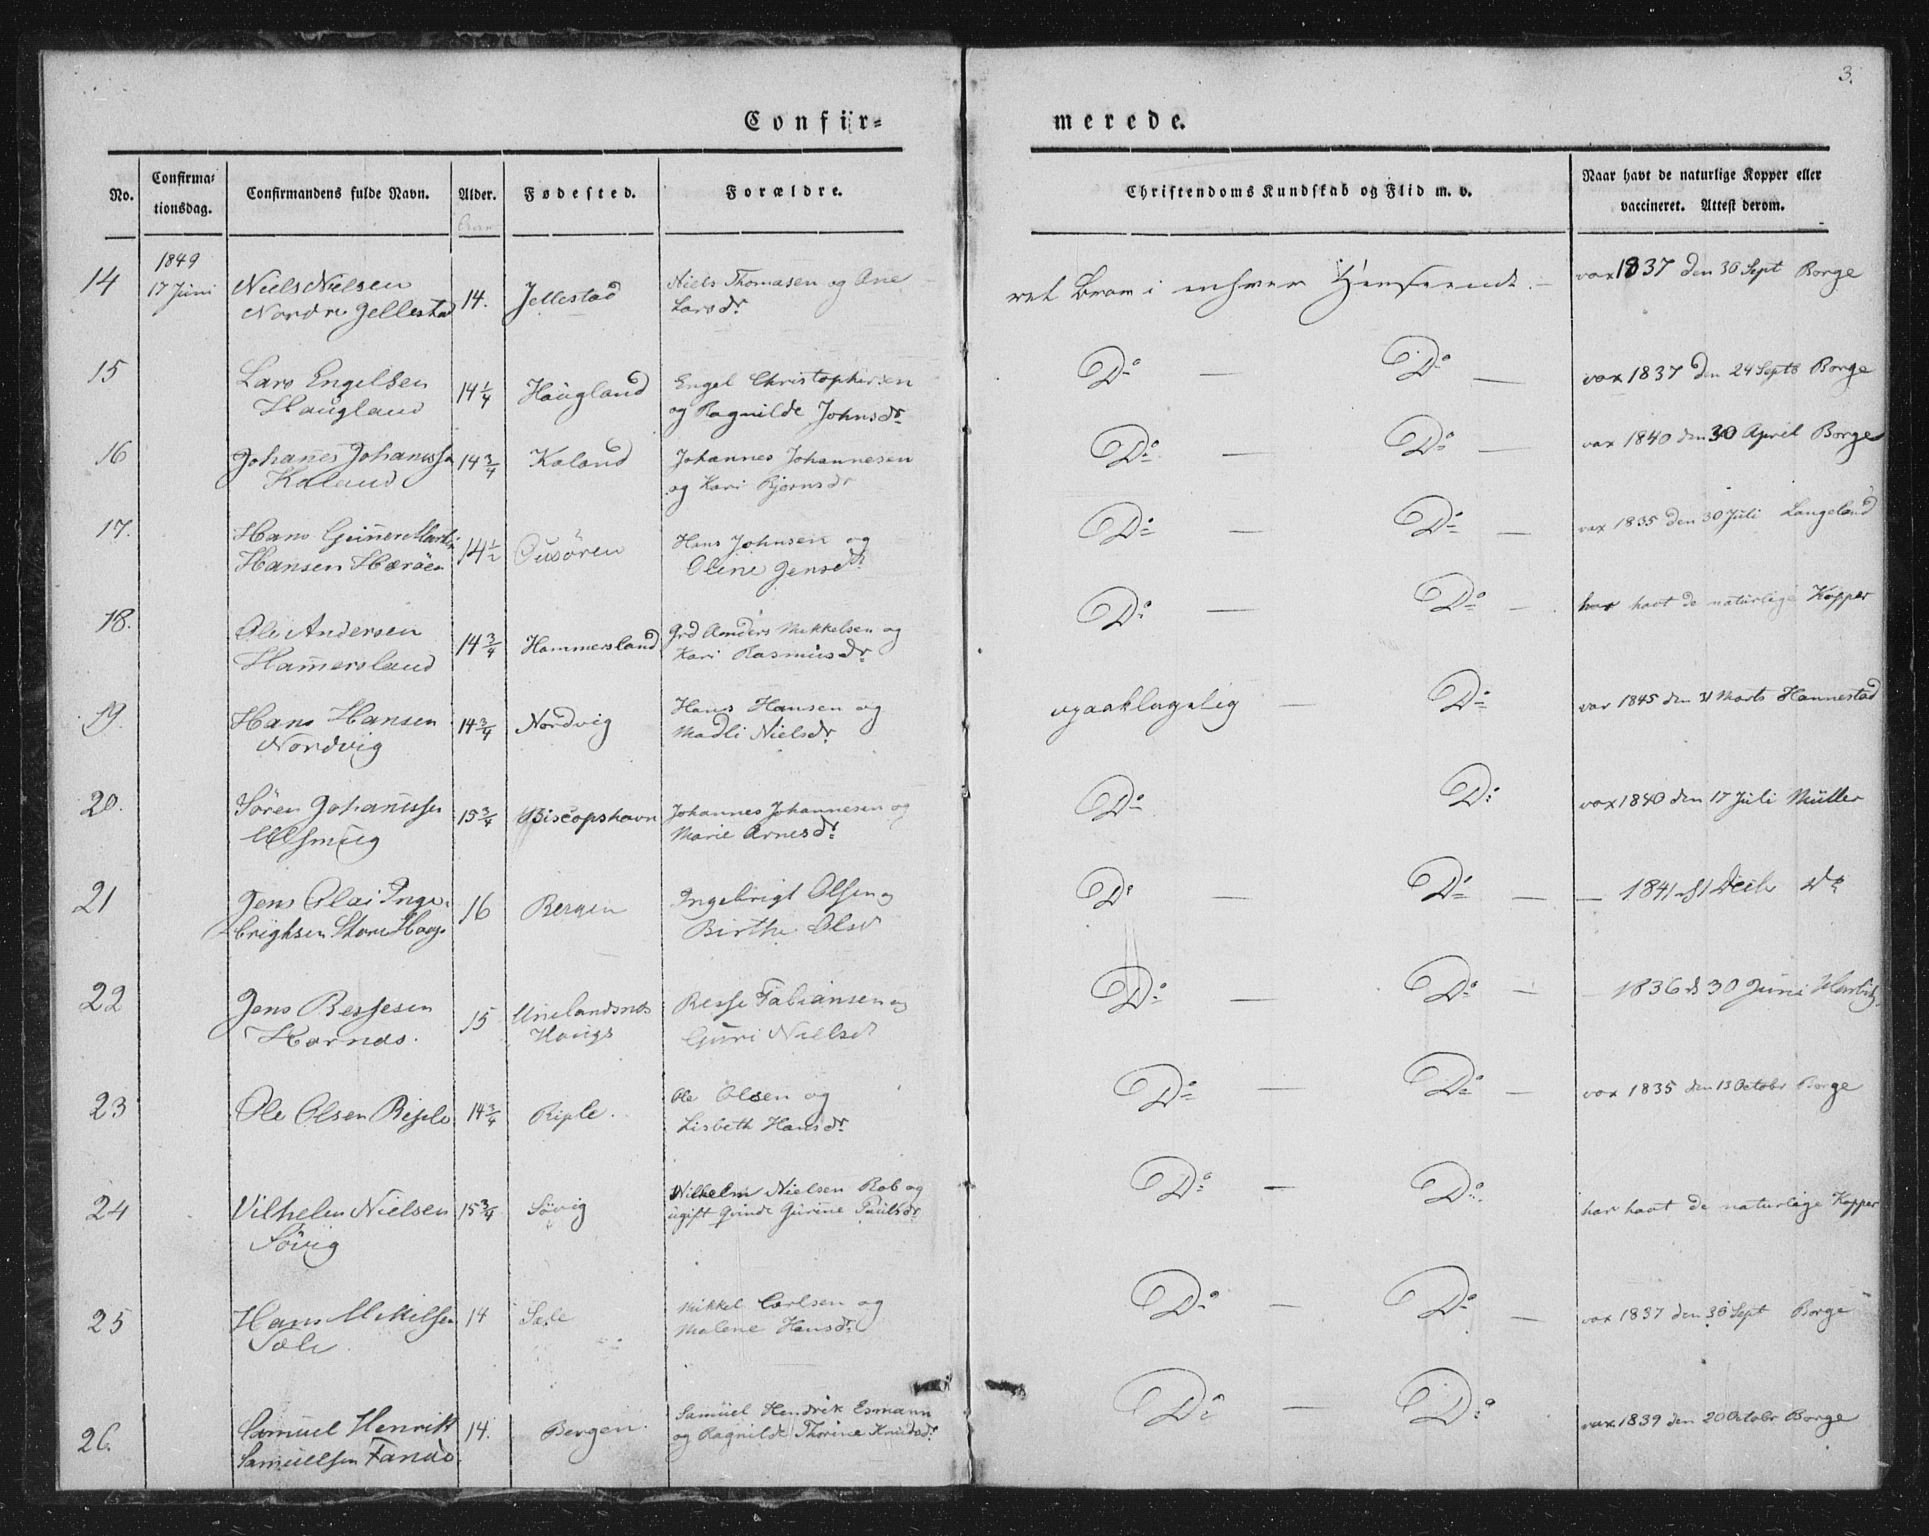 3.
Confir=
merede.
No.
Confirma=
tionsdag.
Confirmandens fulde Navn.
Alder.
Fødested.
Forældre.
Christendoms Kundskab og Flid m. v.
Naar havt de naturlige Kopper eller
vaccineret. Attest derom.
14
1849
17 Juni
Niels Nielsen
Nordre Jellestad
14.
Jellestad
Niels Thomasen og Ane
Larsdr
ret brav i enhver Henseende. –
vax 1837 den 30 Sept Borge
15
Lars Engelsen
Haugland
14 1/4
Haugland
Engel Christophersen
og Ragnilde Johnsdr
Do — Do —
vax 1837 den 24 Septb Borge
16
Johanes Johanssen
Kaland
14 3/4
Kaland
Johannes Johannesen
og Kari Bjørnsdr
Do — Do —
vax 1840 den 30 April Borge
17.
Hans Gunner Martin
Hansen Hærøen
14 1/2
Hans Johnsen og
Oline Jensdr
Do — Do —
vax 1835 den 30 Juli Langeland
18.
Ole Andersen
Hamersland
14 3/4
Hammersland
Grd Anders Mikkelsen og
Kari Rasmusdr
Do — Do —
har havt de naturlige Kopper
19.
Hans Hansen
Nordvig
14 3/4
Nordvig
Hans Hansen og
Madli Nielsdr
upaaklagelig — Do
vax 1845 den 31 Marts Hannestad
20.
Søren Johanssen
Ulsmug
15 3/4
Biscopshavn
Johannes Johannesen og
Marie Arnesdr
Do Do
vax 1840 den 17 Juli Müller
21
Jens Olai Inge-
brightsen Store Haug
16
Bergen
Ingebrigt Olsen og
Birthe Olsd
Do — Do —
— 1841 31 Decb Do
22
Jens Bessesen
Hornæs.
15
Haugs
Besse Fabiansen og
Guri Nielsd
Do — Do —
1836 d 30 Juni
23
Ole Olsen Riple
14 3/4
Riple.
Ole Olsen og
Lisbeth Hansdr
Do — Do —
vax 1835 den 13 Octobr Borge
24
Vilhelm Nielsen
Søvig
15 3/4
Søvig
Wilhelm Nielsen Rob og
ugift Qvinde Gurine Paulsdr
Do — Do.
har havt de naturlige Kopper
25
Hans Mikkelsen
Sæle
14
Sæle
Mikkel Carlsen og
Malene Hansdr
Do — Do —
vax 1837 den 30 Sept Borge
26.
Samuel Henrik
Samuelsen Fanøe.
14.
Bergen.
Samuel Hendrik Esmann
og Ragnilde Thorine Knudsdr
Do — Do
vax 1839 den 20 Octobr Borge